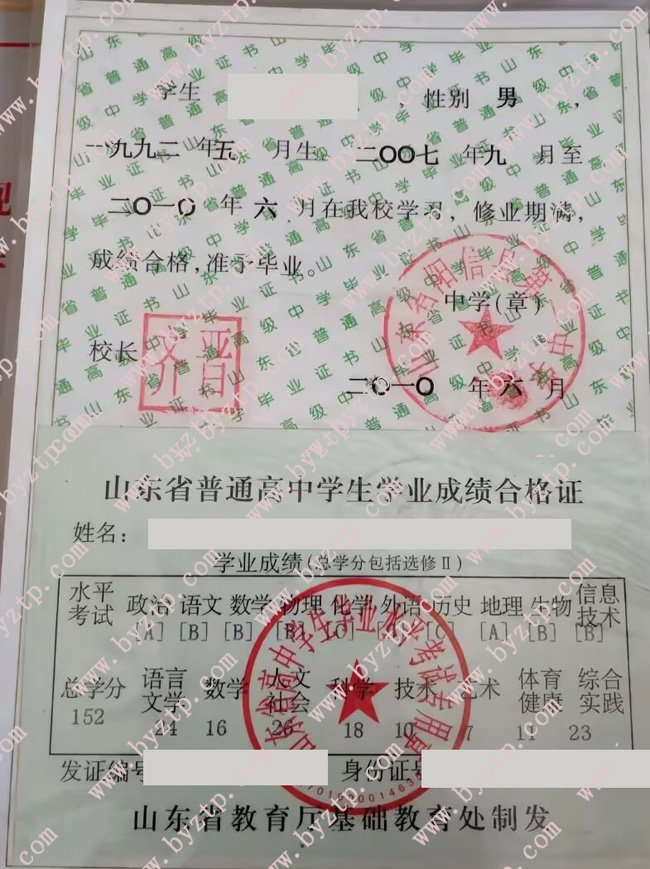 学生 ，性别 男 ，
一九九二 年五 月生 二〇〇七 年九 月至
二〇一〇 年 六 月在我校学习，修业期满，
成绩合格，准予毕业。
山东省阳信县第一中学
中学(章)
校长
齐晋
二〇一〇 年 六 月
山东省普通高中学生学业成绩合格证
姓名：
学业成绩(总学分包括选修Ⅱ)
水平考试 政治 语文 数学 物理 化学 外语 历史 地理 生物 信息技术
[A] [B] [B] [B] [C] [C] [A] [B] [B]
总学分 语言文学 数学 人文社会 科学 技术 艺术 体育健康 综合实践
152 24 16 26 18 10 7 11 23
山东省高中学生学业水平考试专用章
发证编号 身份证号
山东省教育厅基础教育处制发
山东省普通高级中学毕业证书
www.byztp.com